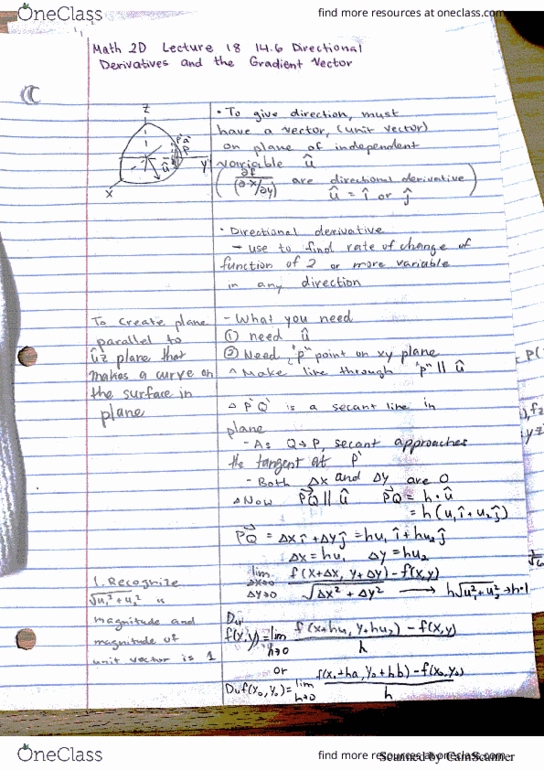 OneClass
find more resources at oneclass.com
Math 2D Lecture 18 14.6 Directional
Derivatives and the Gradient Vector
z
y
x
û
• To give direction, must
have a vector, (unit vector)
on plane of independent
variable û
(∂f/(∂x/∂y) are directional derivative
û = î or ĵ)
• Directional derivative
→ use to find rate of change of
function of 2 or more variable
in any direction
To create plane
parallel to
ûz plane that
makes a curve on
the surface in
plane
- What you need
① need û
② Need "p" point on xy plane
^ Make line through "p" || û
△ P'Q' is a secant line in
plane
- As Q→P, secant approaches
the tangent at P'
- Both Δx and Δy are 0
△ Now PQ || û PQ = h·û
= h(u₁î + u₂ĵ)
PQ = Δxî + Δyĵ = hu₁î + hu₂ĵ
Δx = hu₁ Δy = hu₂
lim Δx→0 Δy→0 f(x+Δx, y+Δy) - f(x,y) / √Δx² + Δy² → h√u₁²+u₂² → h·1
1. Recognize
√u₁²+u₂²
magnitude and
magnitude of
unit vector is 1
Du
f(x,y) = lim h→0 f(x+hu₁, y+hu₂) - f(x,y) / h
or
Duf(x₀,y₀) = lim h→0 f(x₀+ha, y₀+hb) - f(x₀,y₀) / h
OneClass
find more resources at oneclass.com
Scanned by CamScanner